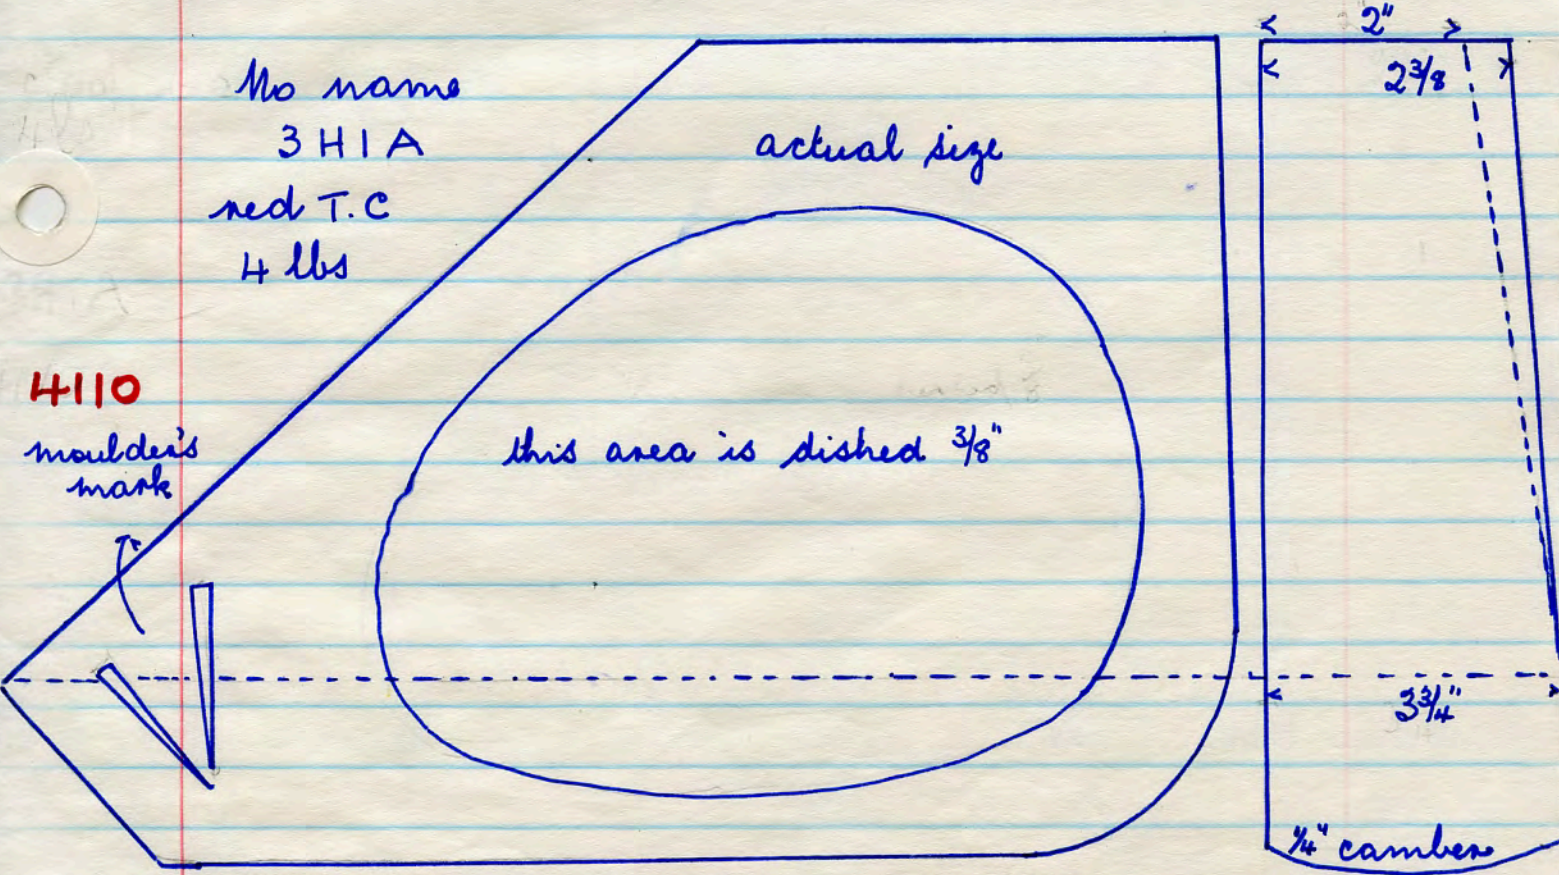 No name
3 H I A
red T.C
4 lbs
4110
moulder's
mark
actual size
this area is dished 3/8"
2"
2 3/8
3 3/4"
1/4" camber